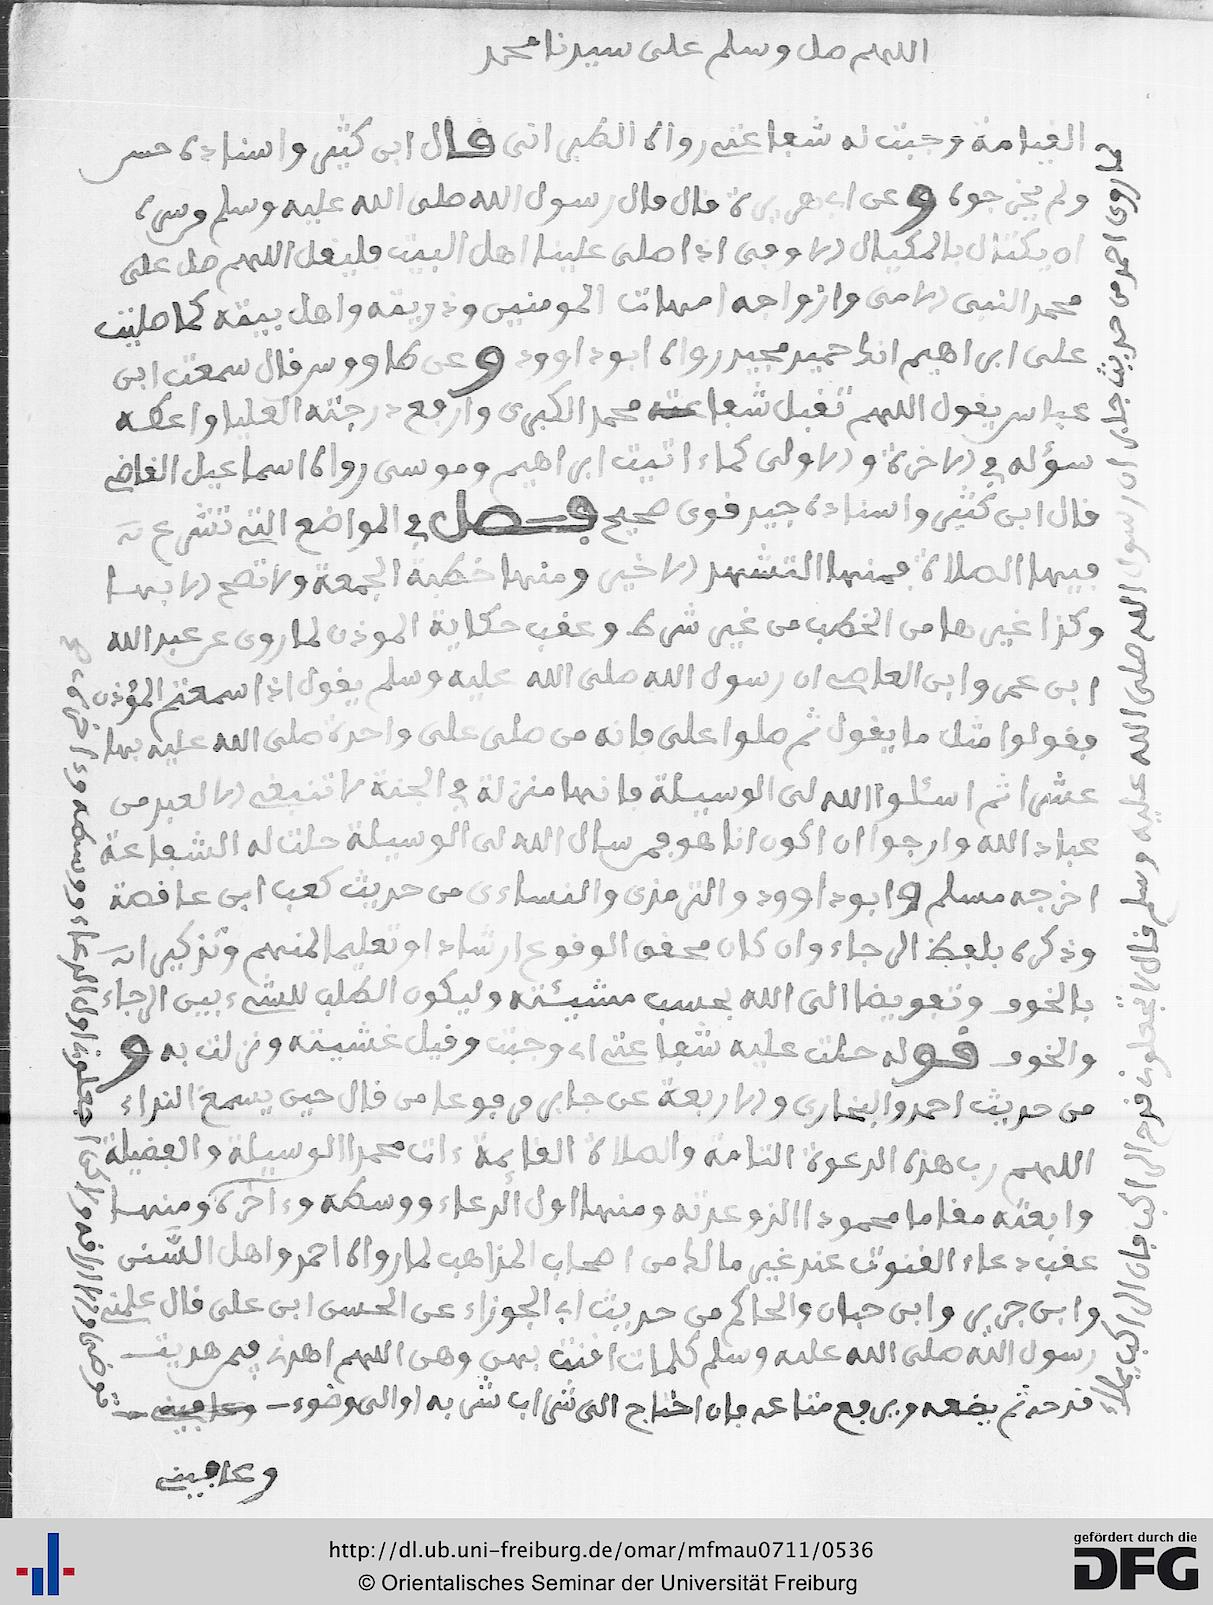 اللهم صل وسلم على سيدنا محمد
القيامة وجبت له شفاعتى رواه الطبرانى قال ابن كثير واسناده حسن
ولم يخرجوه وعن ابى هريرة قال قال رسول الله صلى الله عليه وسلم من سره
ان يكتال بالمكيال الاوفى اذا صلى علينا اهل البيت فليقل اللهم صل على
محمد النبى الامى وازواجه امهات المومنين وذريته واهل بيته كما صليت
على ابراهيم انك حميد مجيد رواه ابو داوود وعن طاووس قال سمعت ابن
عباس يقول اللهم تقبل شفاعة محمد الكبرى وارفع درجته العليا واعطه
سؤله في الاخرة والاولى كما ءاتيت ابراهيم وموسى رواه اسماعيل القاضى
قال ابن كثير واسناده جيد قوى صحيح فصل في المواضع التى تشرع
فيها الصلاة فمنها التشهد الاخير ومنها خطبة الجمعة ولا تصح الا بها
وكذا غيرها من الخطب من غير شرط وعقب حكاية الموذن لما روى عن عبد الله
ابن عمرو ابن العاص ان رسول الله صلى الله عليه وسلم يقول اذا سمعتم المؤذن
فقولوا مثل ما يقول ثم صلوا على فانه من صلى على واحدة صلى الله عليه بها
عشرا ثم اسئلوا الله لى الوسيلة فانها منزلة في الجنة لا تنبغى الا لعبد من
عباد الله وارجوا ان اكون انا هو فمن سال الله لى الوسيلة حلت له الشفاعة
اخرجه مسلم وابو داوود والترمذى والنساءى من حديث كعب ابن علقمة
وذكره بلفظ الرجاء وان كان محقق الوقوع ارشادا وتعليما لمنهم وتذكيرا
بالخوف وتفويضا الى الله بحسب مشيئته وليكون الطلب للشىء بين الرجاء
والخوف قوله حلت عليه شفاعتى اى وجبت وقيل غشيته ونزلت به و
من حديث احمد والبخارى والاربعة عن جابر مرفوعا من قال حين يسمع النداء
اللهم رب هذه الدعوة التامة والصلاة القايمة ءات محمدا الوسيلة والفضيلة
وابعثه مقاما محمودا الذى وعدته ومنها اول الدعاء ووسطه وءاخره ومنها
عقب دعاء القنوت عند غير مالك من اصحاب المذاهب لما رواه احمد واهل السنن
وابن جرير وابن حبان والحاكم من حديث ابى الجوزاء عن الحسن ابن على قال علمنى
رسول الله صلى الله عليه وسلم كلمات اقنت بهن وهى اللهم اهدنى فيمن هديت
وعافينى
ما روى احمد من حديث جابر ان رسول الله صلى الله عليه وسلم قال لا تجعلونى كقدح الراكب فان الراكب يملأ
قدحه ثم يضعه ويرفع متاعه فان احتاج الى شراب شربه او الى وضوء
توضأ والا اراقه ولاكن اجعلونى اول الدعاء ووسطه وءاخره
http://dl.ub.uni-freiburg.de/omar/mfmau0711/0536
© Orientalisches Seminar der Universität Freiburg
gefördert durch die
DFG